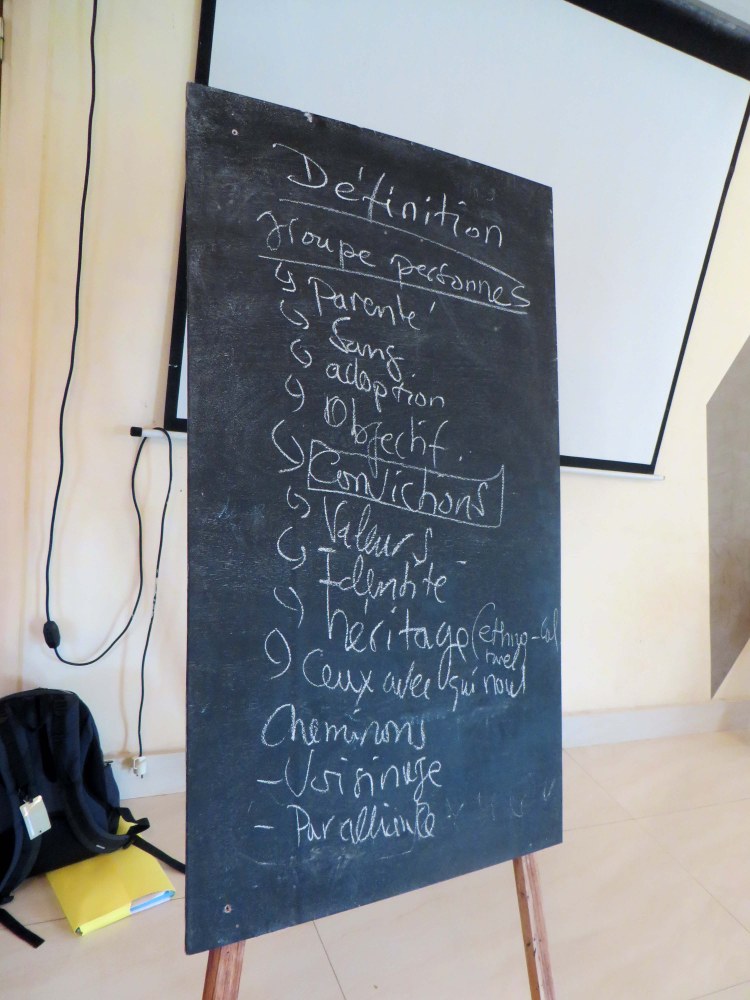 Définition
groupe personnes
Parenté
Sang
adoption
Objectif.
Convictions
Valeurs
Identité
héritage
Ceux avec qui nous
Cheminons
- Voisinage
- Par alliance